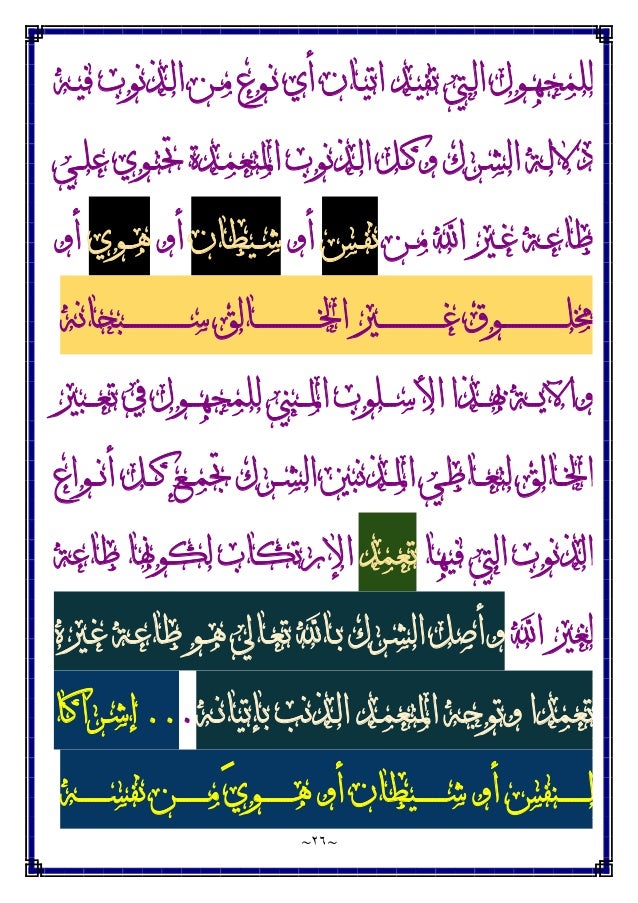 للمجهول التي تفيد اتيان أي نوع من الذنوب فيه
دلالة الشرك وكل الذنوب المتعمدة تحتوي علي
طاعة غير الله من نفس أو شيطان أو هوي أو
مخلوق غير الخالق سبحانه
والاية بهذا الأسلوب المبني للمجهول في تعبير
الخالق لتعاطي المذنبين الشرك تجمع كل أنواع
الذنوب التي فيها تعمد الإرتكاب لكونها طاعة
لغير الله وأصل الشرك بالله تعالي هو طاعة غيره
تعمدا وتوجه المتعمد الذنب بإتيانه... إشراكا
لنفس أو شيطان أو هويَ من نفسه
~٢٦~